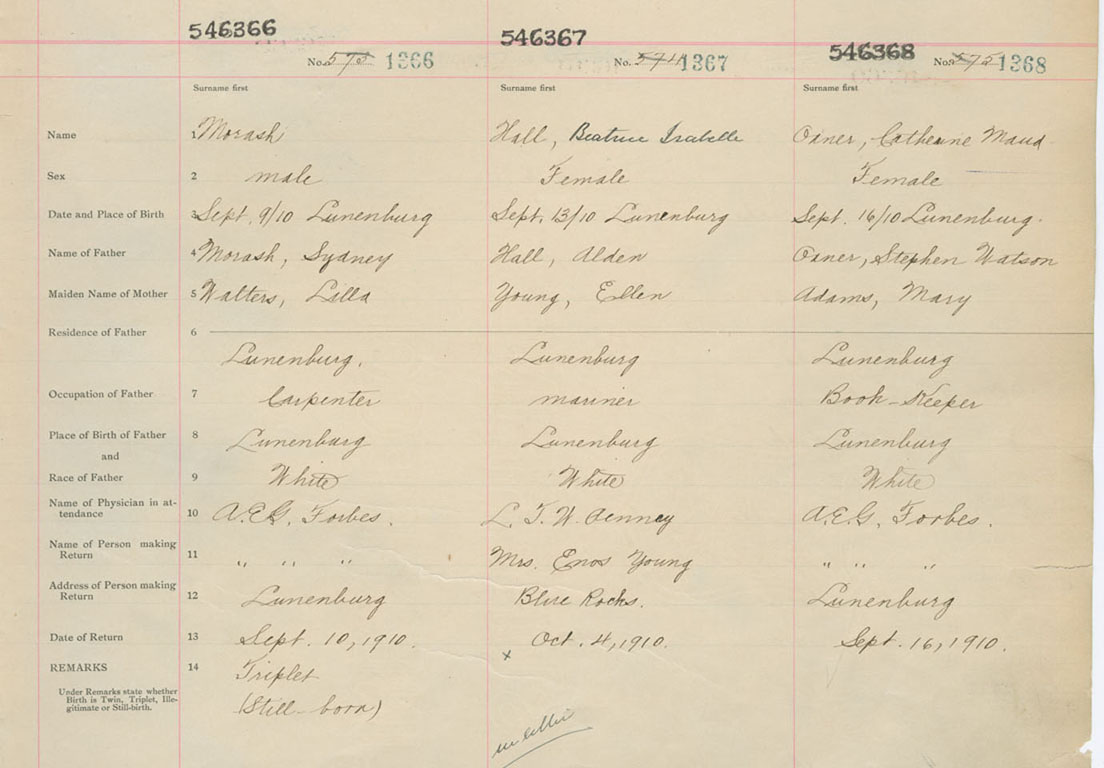 546366 546367 546368
No. 1366 No. 1367 No. 575 1368
Surname first Surname first Surname first
Name 1 Morash Hall, Beatrice Isabelle Oxner, Catherine Maud
Sex 2 male Female Female
Date and Place of Birth 3 Sept. 9/10 Lunenburg Sept. 13/10 Lunenburg Sept. 16/10 Lunenburg.
Name of Father 4 Morash, Sydney Hall, Alden Oxner, Stephen Watson
Maiden Name of Mother 5 Walters, Lilla Young, Ellen Adams, Mary
Residence of Father 6
Lunenburg. Lunenburg Lunenburg
Occupation of Father 7 Carpenter mariner Book-Keeper
Place of Birth of Father 8 Lunenburg Lunenburg Lunenburg
and
Race of Father 9 White White White
Name of Physician in at-
tendance 10 A.E.G. Forbes. L. T. W. Penney A.E.G. Forbes.
Name of Person making
Return 11 " " " Mrs. Enos Young " " "
Address of Person making
Return 12 Lunenburg Blue Rocks. Lunenburg
Date of Return 13 Sept. 10, 1910. x Oct. 4, 1910. Sept. 16, 1910.
REMARKS 14 Triplet
Under Remarks state whether
Birth is Twin, Triplet, Ille-
gitimate or Still-birth.
(Still-born)